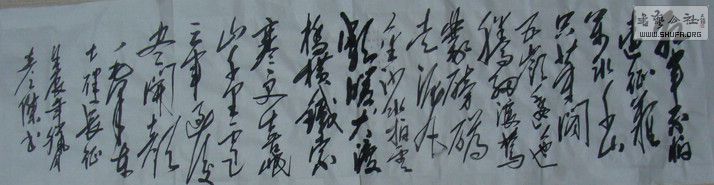 红军不怕
远征难
万水千山
只等闲
五岭逶迤
腾细浪乌
蒙磅礴
走泥丸
金沙水拍云
崖暖大渡
桥横铁索
寒更喜岷
山千里雪
三军过后
尽开颜
七律长征
书艺公社
WWW.SHUFA.ORG